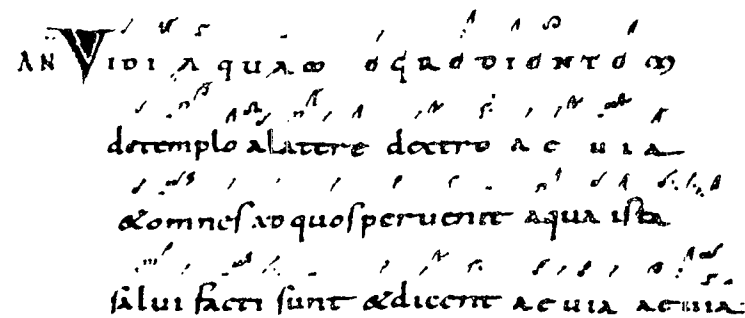 AN VIDI AQUAM EGREDIENTEM
detemplo alatere dextro AEUIA
&omnes adquos peruenit aqua ista
salui facti sunt &dicent AEUIA AEUIA